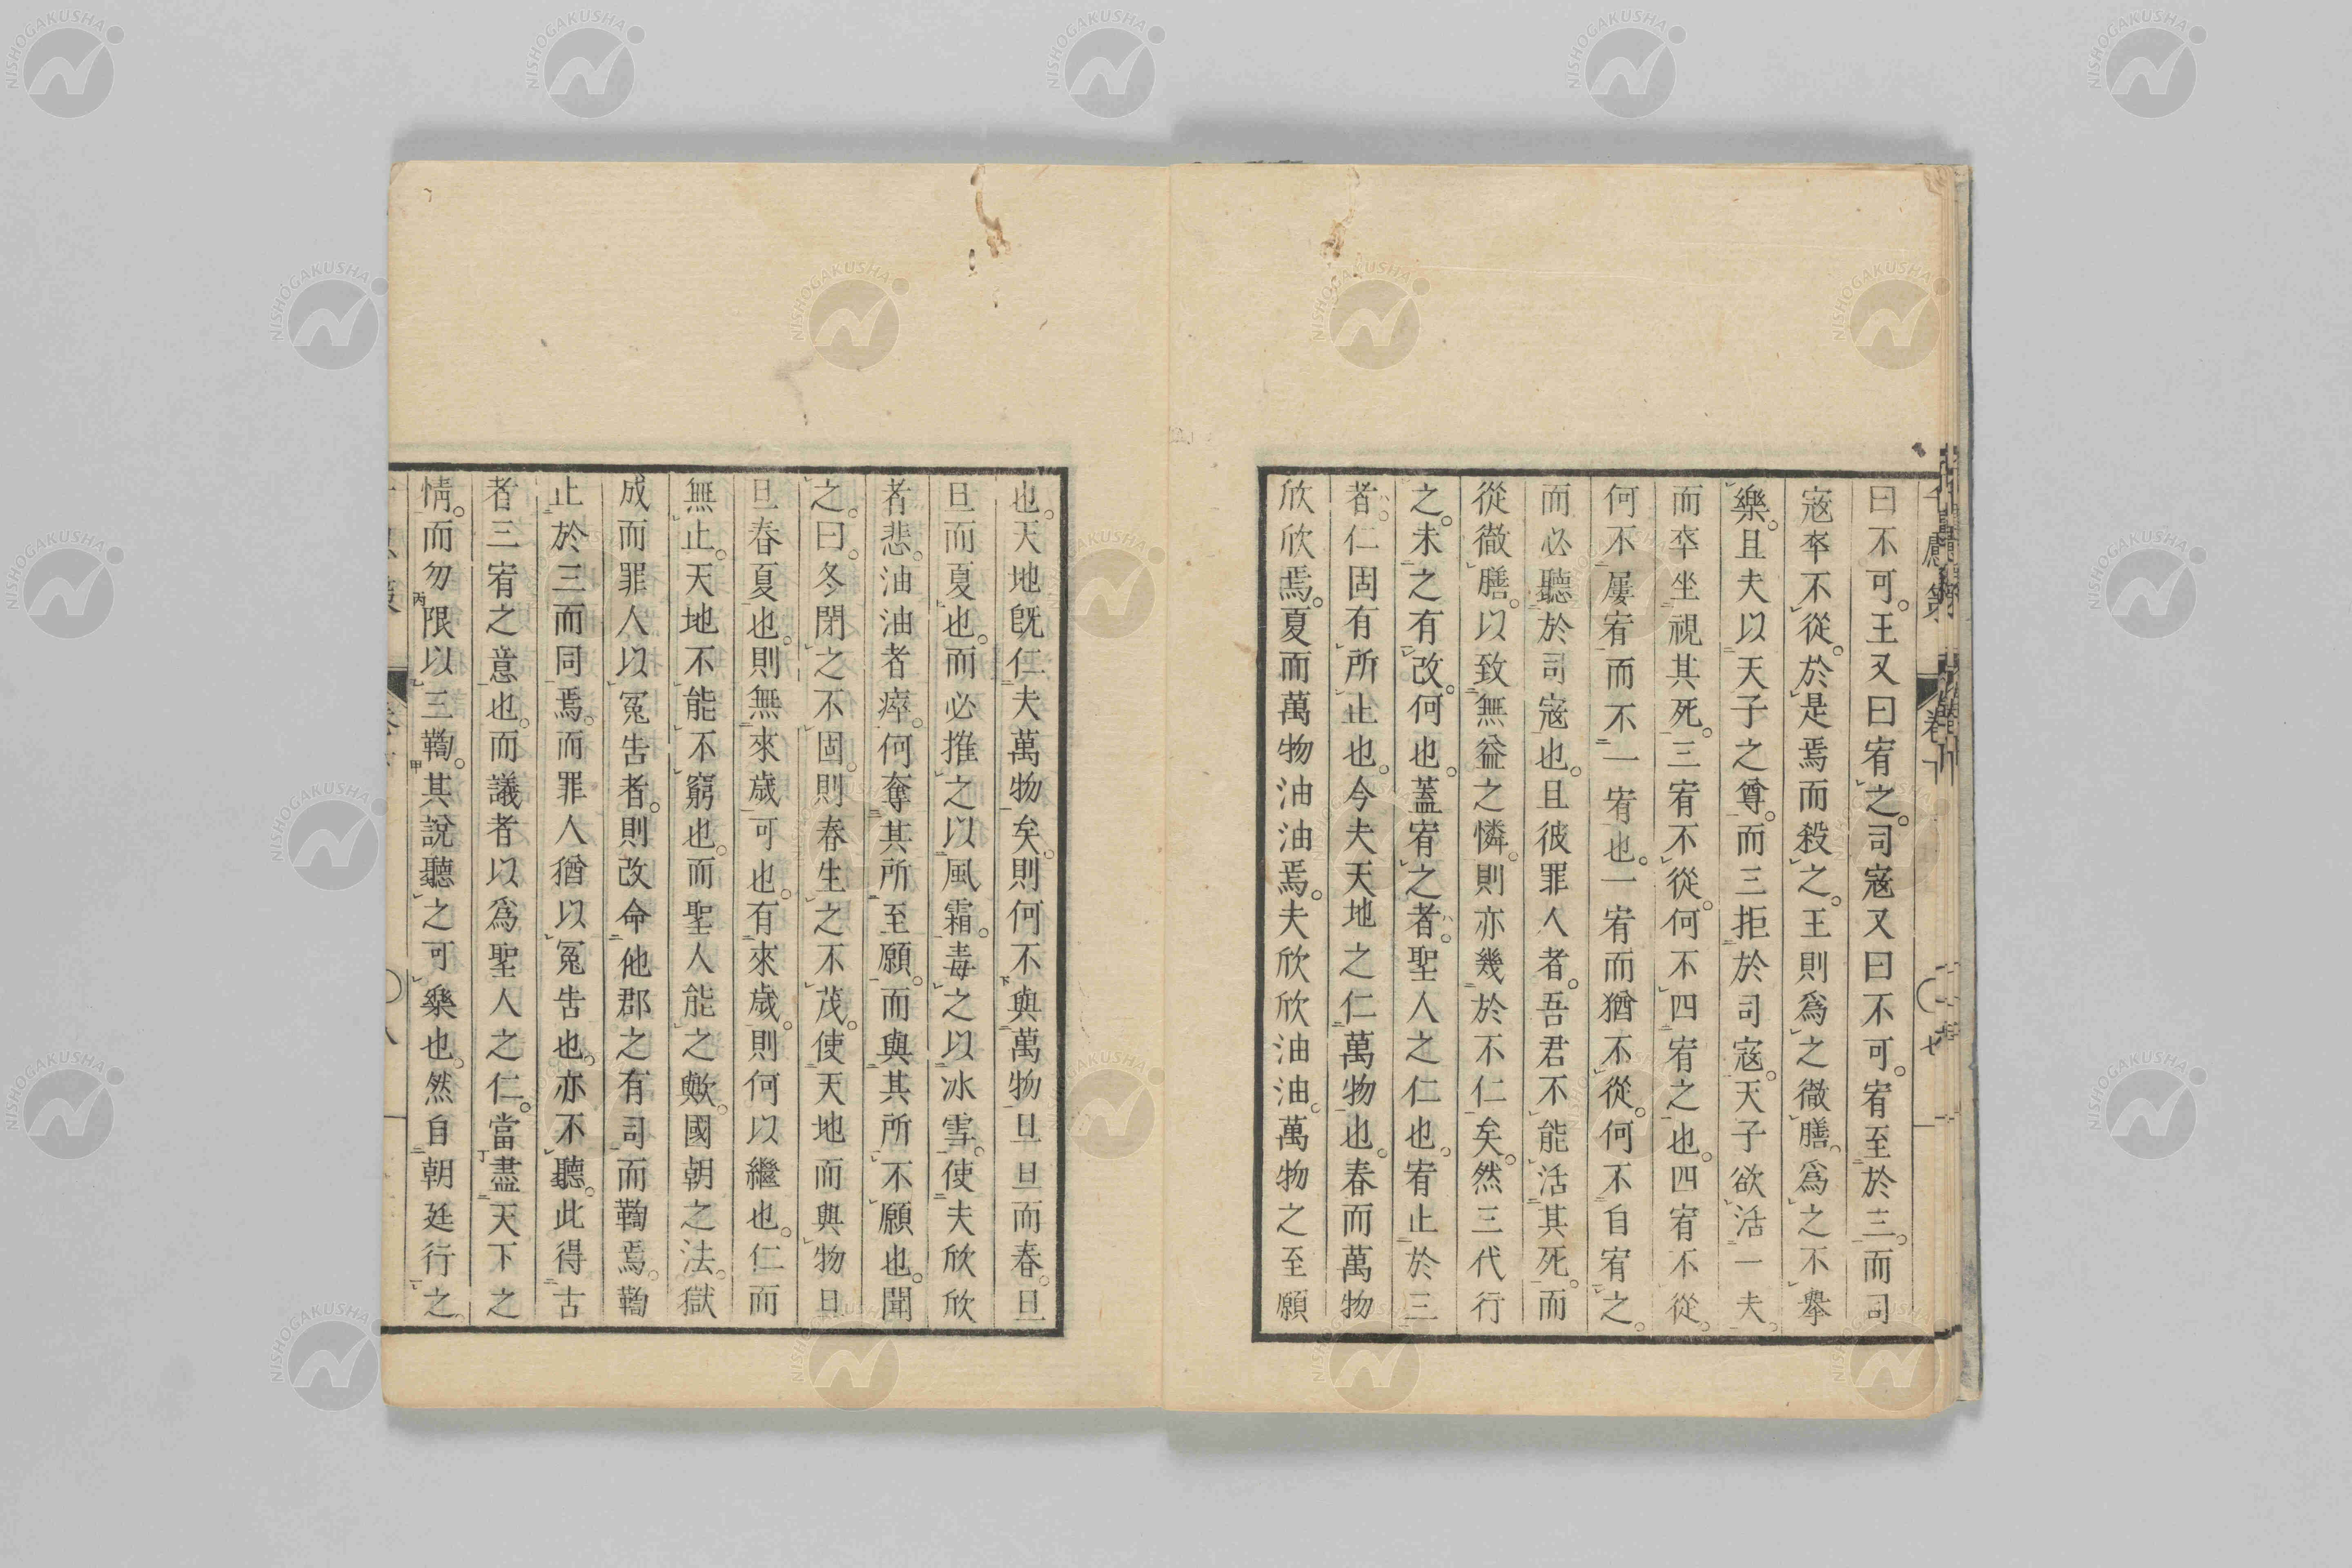 曰不可。王又曰宥之。司寇又曰不可。宥至於三。而司
寇卒不從。於是焉而殺之。王則爲之徹膳。爲之不擧
樂。且夫以天子之尊。而三拒於司寇。天子欲活一夫。
而卒坐視其死。三宥不從。何不四宥之也。四宥不從。
何不屢宥而不一宥也。一宥而猶不從。何不自宥之。
而必聽於司寇也。且彼罪人者。吾君不能活其死。而
從徹膳。以致無益之憐。則亦幾於不仁矣。然三代行
之。未之有改。何也。蓋宥之者。聖人之仁也。宥止於三
者。仁固有所止也。今夫天地之仁萬物也。春而萬物
欣欣焉。夏而萬物油油焉。夫欣欣油油。萬物之至願
也。天地旣仁夫萬物矣。則何不與萬物旦旦而春。旦
旦而夏也。而必摧之以風霜。毒之以冰雪。使夫欣欣
者悲。油油者瘁。何奪其所至願。而與其所不願也。聞
之。曰。冬閉之不固。則春生之不茂。使天地而與物旦
旦春夏也。則無來歲可也。有來歲。則何以繼也。仁而
無止。天地不能不窮也。而聖人能之歟。國朝之法。獄
成而罪人以冤告者。則改命他郡之有司而鞫焉。鞫
止於三而同焉。而罪人猶以冤告也。亦不聽。此得古
者三宥之意也。而議者以爲聖人之仁。當盡天下之
情。而勿限以三鞫。其說聽之可樂也。然自朝廷行之
NISHOGAKUSHA